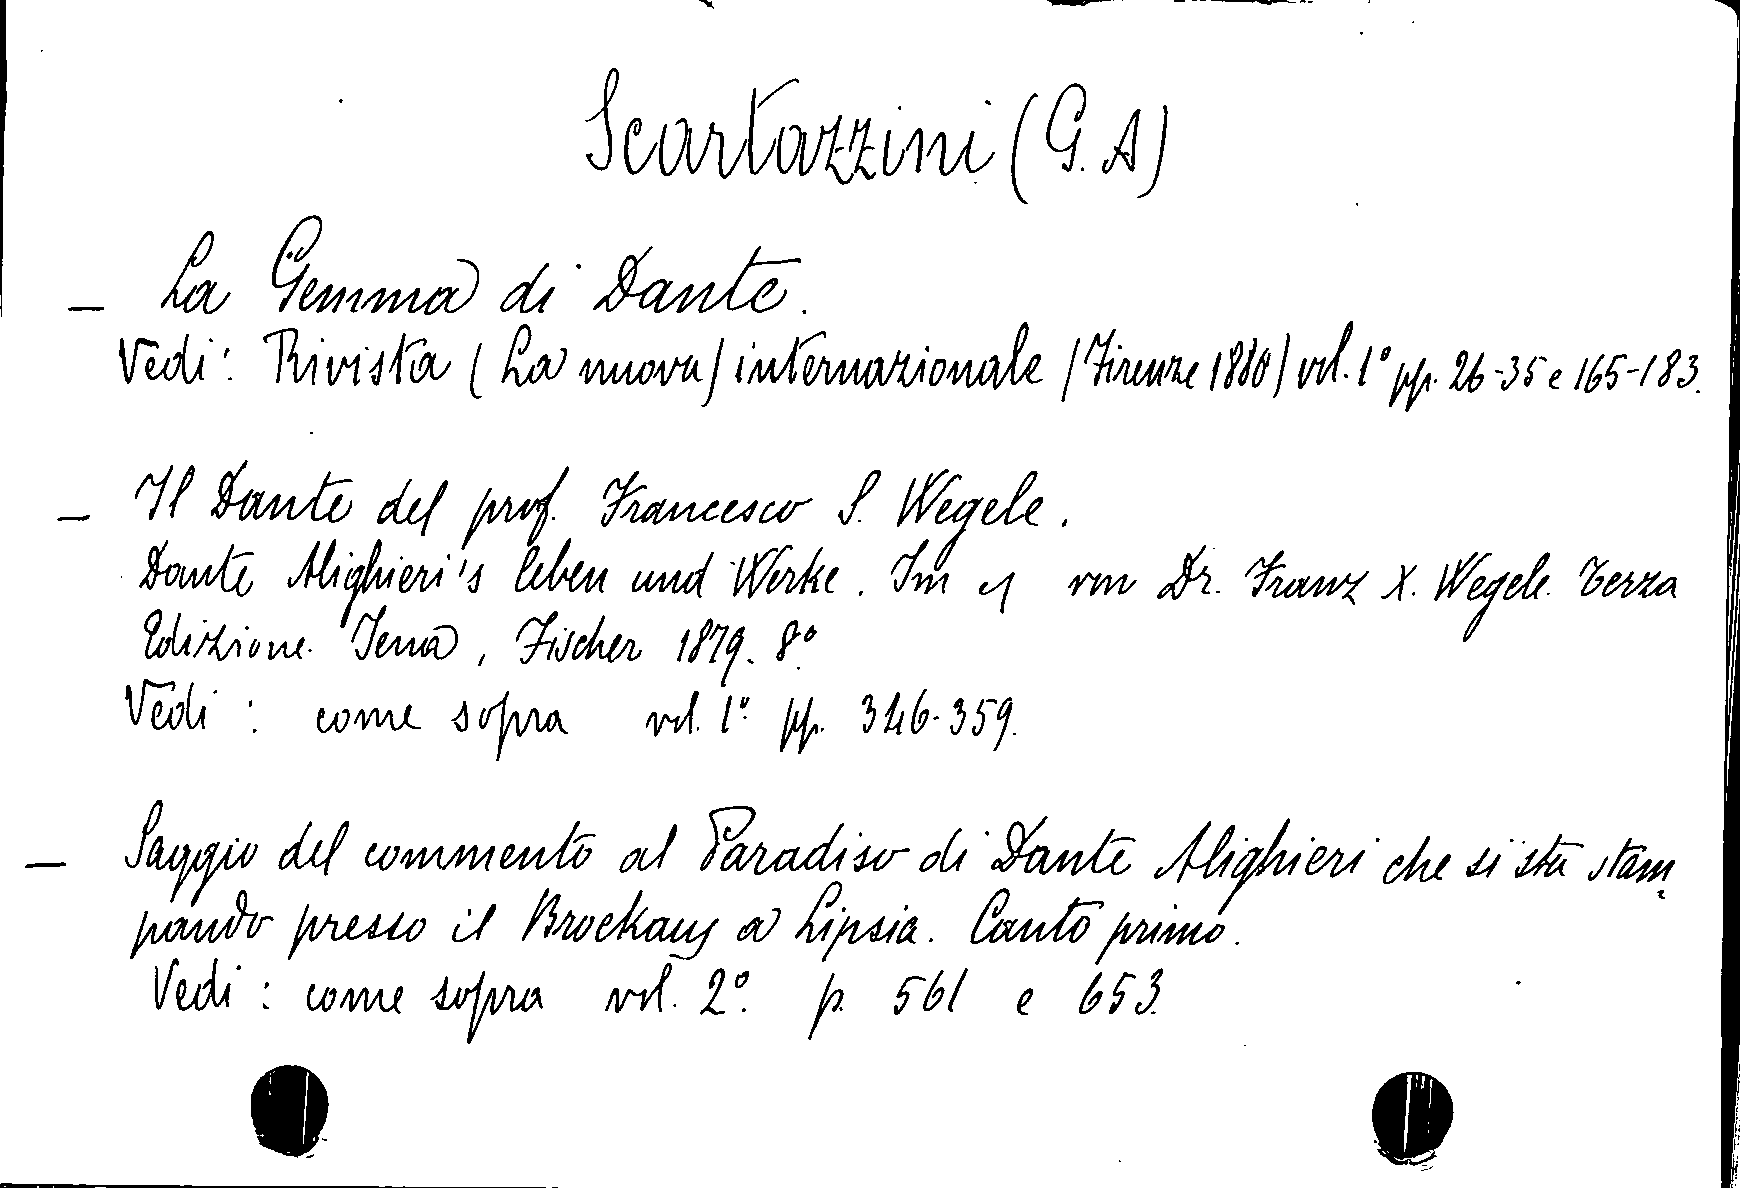 Scartazzini (G. A)
— La Gemma di Dante.
Vedi: Rivista (La nuova) internazionale (Firenze 1880) vol. 1° pp. 26-35 e 165-183.
— Il Dante del prof. Francesco S. Wegele.
Dante Alighieri's leben und Werke. Im von Dr. Franz X. Wegele. Terza
Edizione. Jena, Fischer 1879. 8°
Vedi: come sopra vol. 1°. pp. 346-359.
— Saggio del commento al Paradiso di Dante Alighieri che si sta stam
pando presso il Brockaus a Lipsia. Canto primo.
Vedi: come sopra vol. 2°. p. 561 e 653.